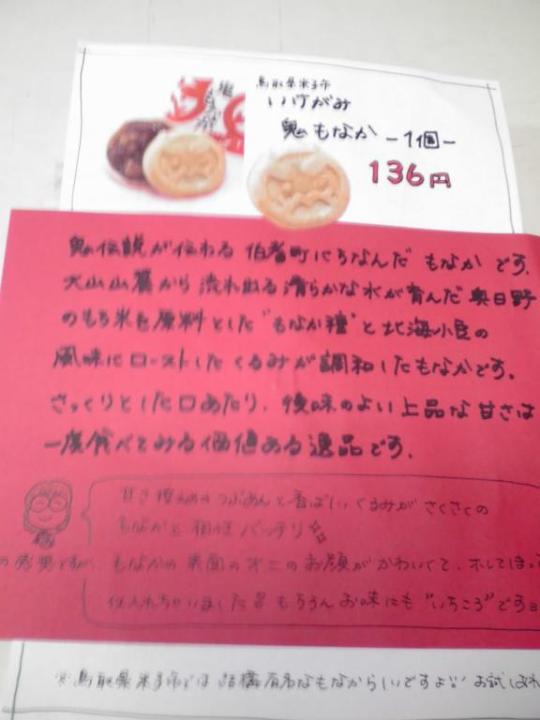 鳥取県米子市
いけがみ
鬼もなか -1個-
136円
鬼伝説が伝わる 伯耆町にちなんだ もなか です。
大山山麓から 流れ出る 清らかな水が育んだ 奥日野
のもち米を原料とした "もなか種" と 北海小豆の
風味にローストした くるみが 調和したもなかです。
さっくりとした口あたり、後味のよい上品な甘さは
一度食べてみる価値ある逸品です。
甘さ控えめのつぶあんと香ばしいくるみがさくさくの
もなかと相性バッチリ
もなかの表面のオニのお顔がかわいくて、ホレて
仕入れちゃいました もちろん お味にも "いちころ" です
※鳥取県米子市では 結構有名なもなからしいですよ!! お試し